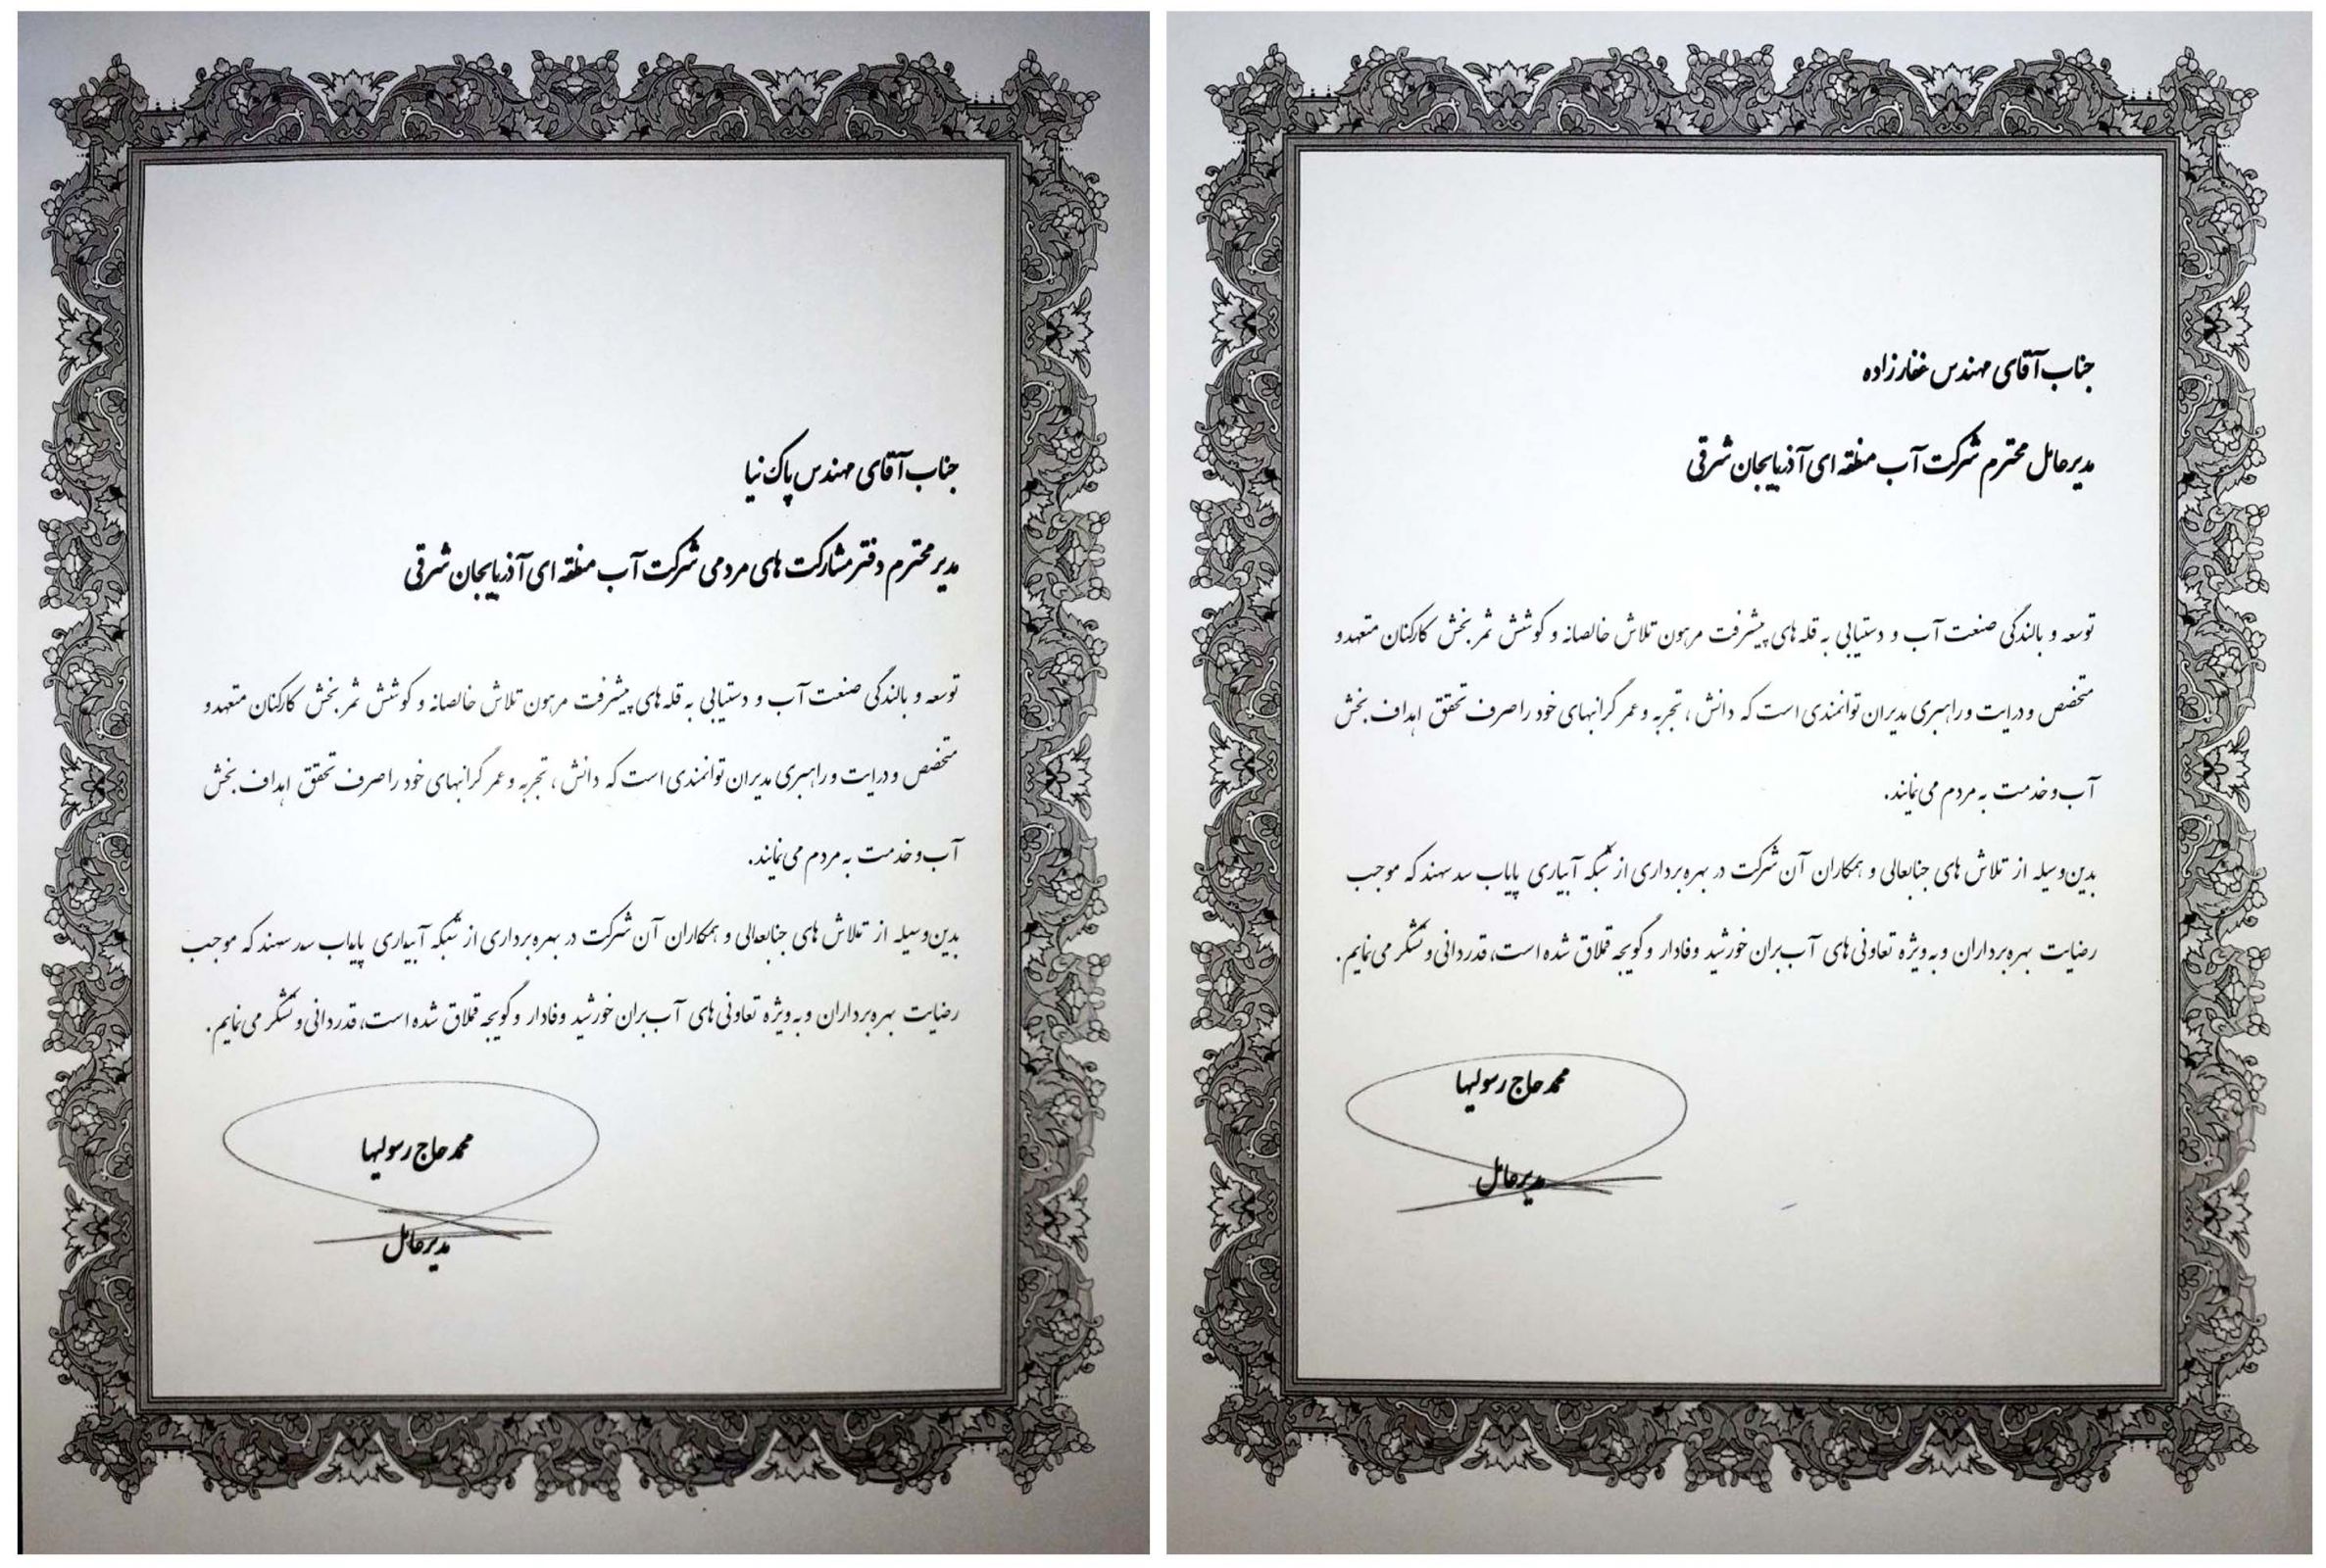 جناب آقای مهندس پاک نیا
مدیر محترم دفتر مشارکت های مردمی شرکت آب منطقه ای آذربایجان شرقی
توسعه و بالندگی صنعت آب و دستیابی به قله های پیشرفت مرهون تلاش خالصانه و کوشش ثمربخش کارکنان متعهد و
متخصص و درایت و راهبری مدیران توانمندی است که دانش ، تجربه و عمر گرانبهای خود را صرف تحقق اهداف بخش
آب و خدمت به مردم می نمایند.
بدین وسیله از تلاش های جنابعالی و همکاران آن شرکت در بهره برداری از شبکه آبیاری پایاب سد سهند که موجب
رضایت بهره برداران و به ویژه تعاونی های آب بران خورشید وفادار و گویجه قملاق شده است، قدردانی و تشکر می نمایم.
محمد حاج رسولیها
مدیرعامل
جناب آقای مهندس غفارزاده
مدیرعامل محترم شرکت آب منطقه ای آذربایجان شرقی
توسعه و بالندگی صنعت آب و دستیابی به قله های پیشرفت مرهون تلاش خالصانه و کوشش ثمربخش کارکنان متعهد و
متخصص و درایت و راهبری مدیران توانمندی است که دانش ، تجربه و عمر گرانبهای خود را صرف تحقق اهداف بخش
آب و خدمت به مردم می نمایند.
بدین وسیله از تلاش های جنابعالی و همکاران آن شرکت در بهره برداری از شبکه آبیاری پایاب سد سهند که موجب
رضایت بهره برداران و به ویژه تعاونی های آب بران خورشید وفادار و گویجه قملاق شده است، قدردانی و تشکر می نمایم.
محمد حاج رسولیها
مدیرعامل